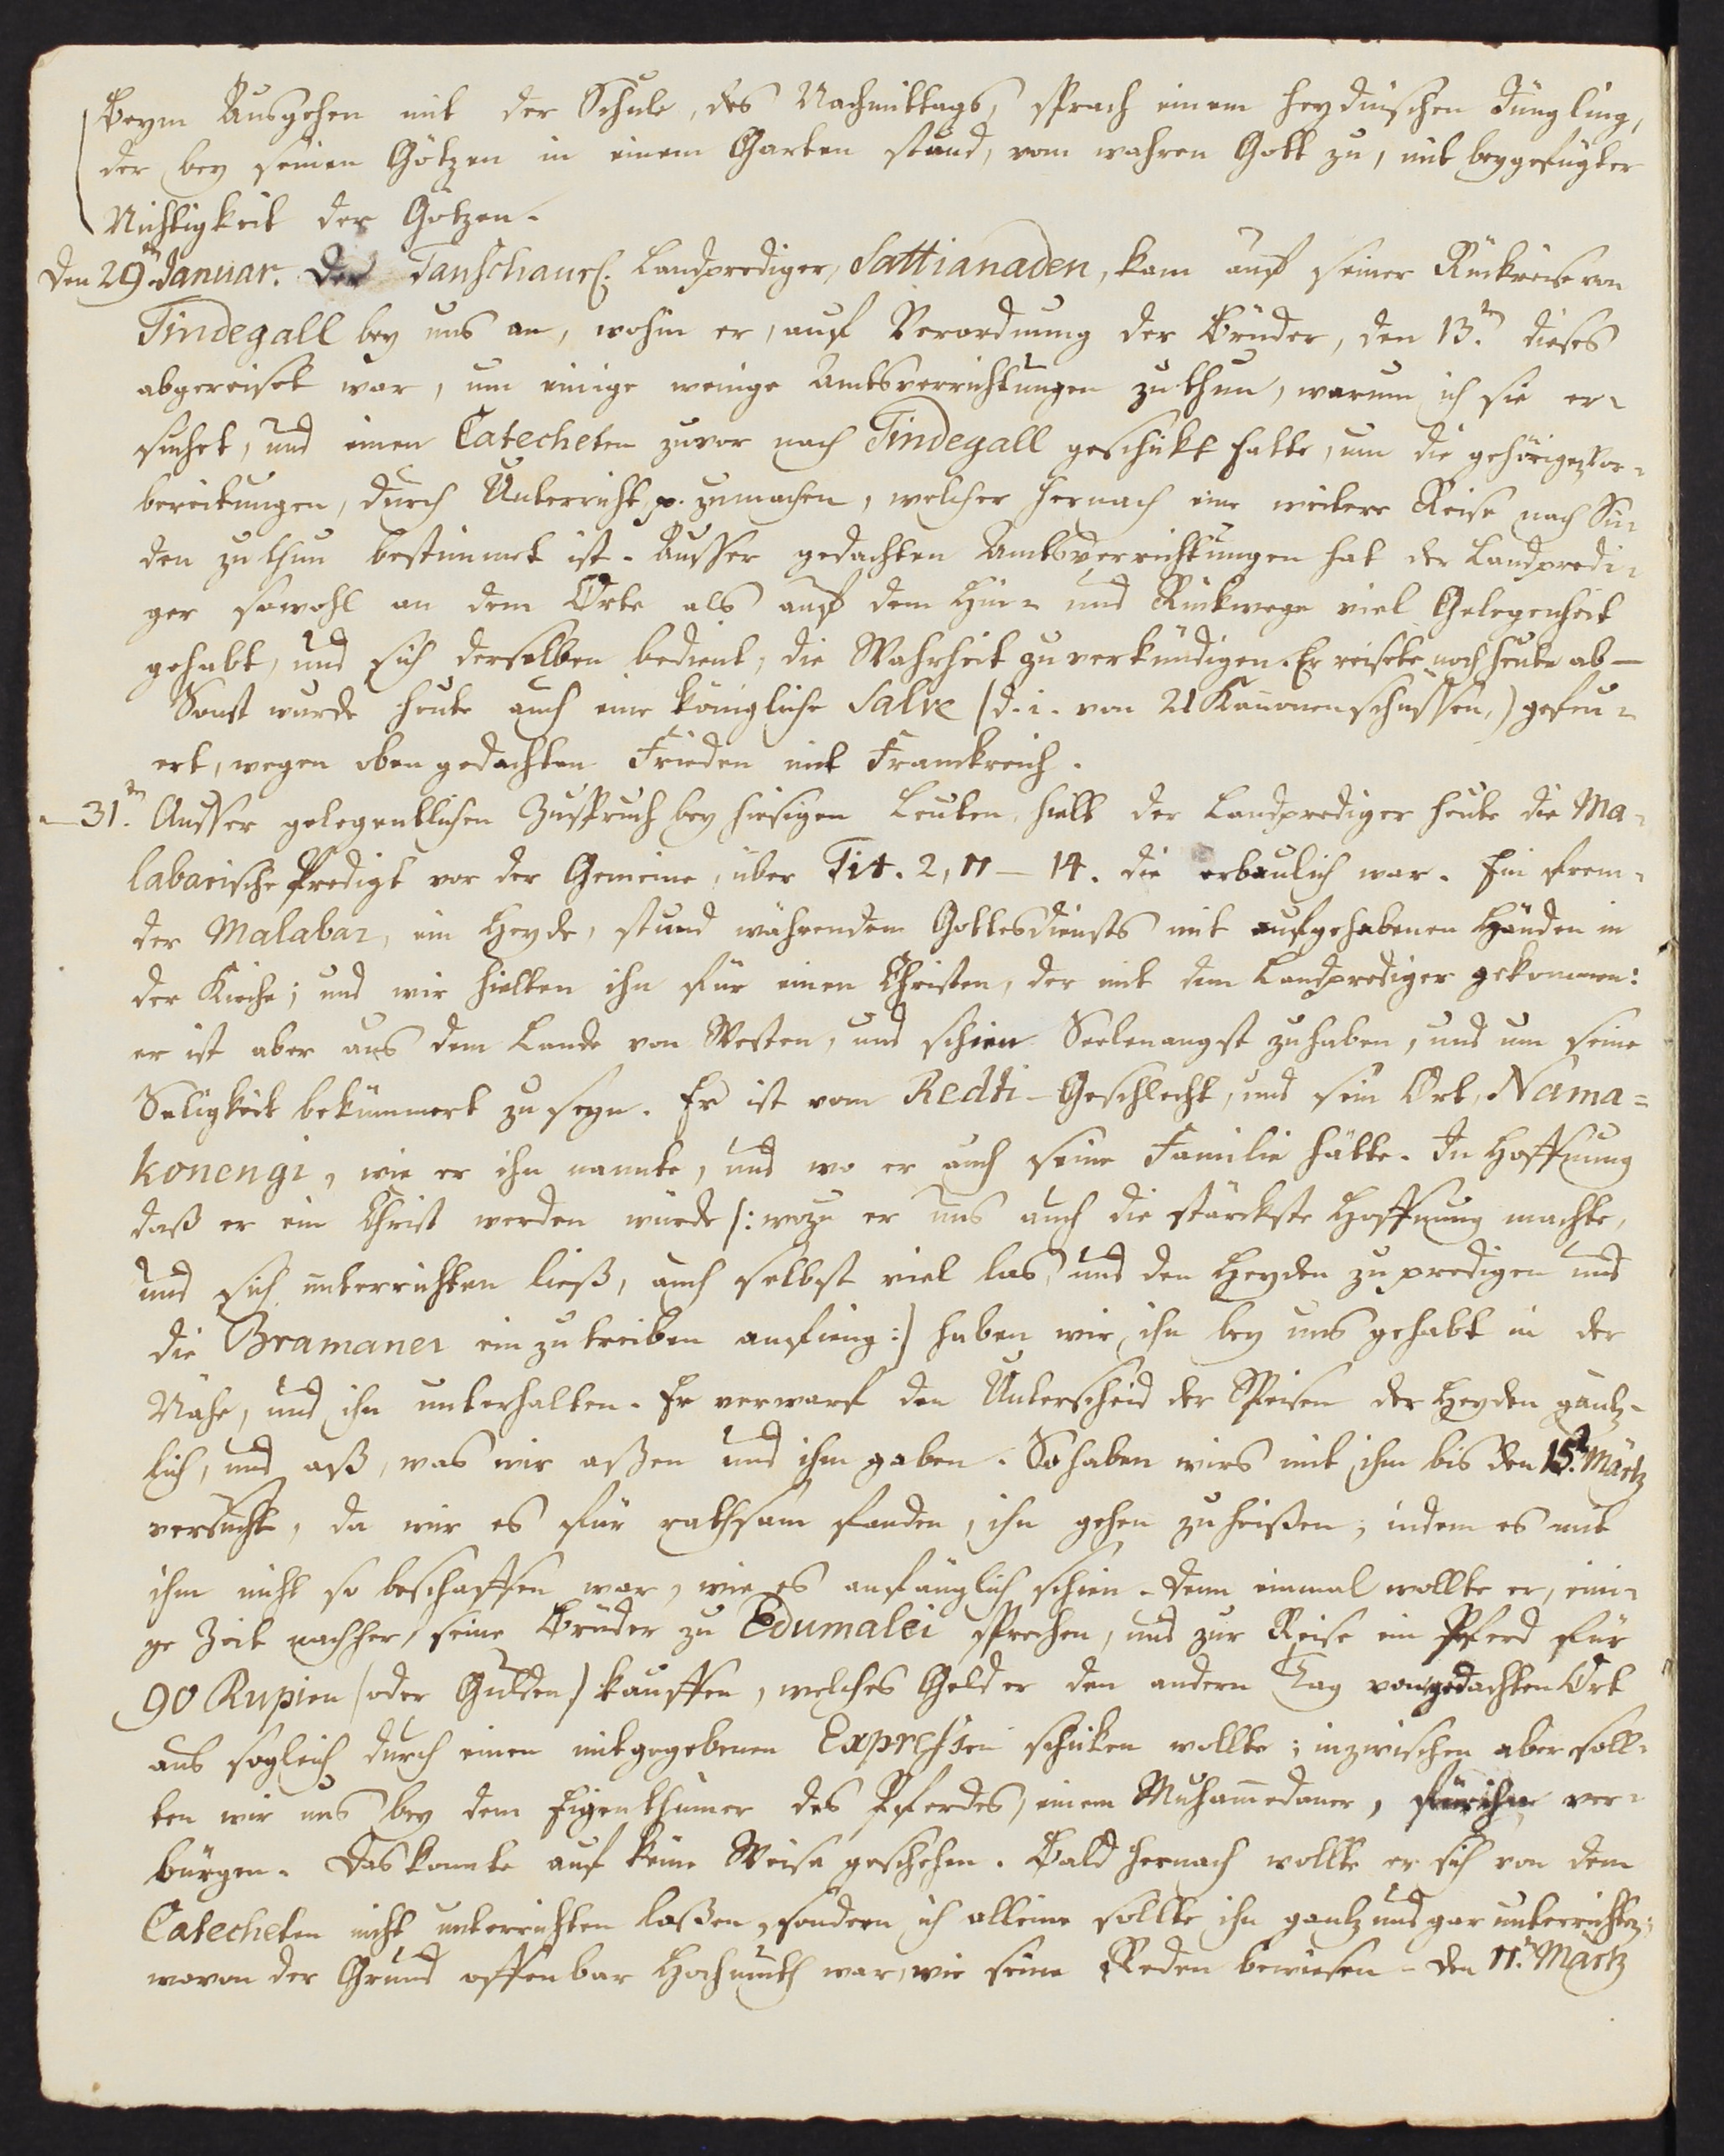 Beym Ausgehen mit der Schule, des Nachmittags, sprach einem heydnischen Jüngling,
der bey seinen Götzen in einem Garten stund, vom wahren Gott zu, mit beygefügter
Nichtigkeit der Götzen.
Den 29n Januar. Der Tanschaurs. Landprediger, Sattianaden, kam auf seiner Rükreise von
Tindegall bey uns an, wohin er, auf Verordnung der Brüder, den 13.n dieses
abgereiset war, um einige wenige Amtsverrichtungen zu thun, warum ich sie er=
suchet, und einen Catecheten zuvor nach Tindegall geschikt hatte, um die gehörigen Vor=
bereitungen, durch Unterricht p. zumachen, welcher hernach eine weitere Reise nach Sü=
den zu thun bestimmet ist. Ausser gedachten Amtsverrichtungen hat der Landpredi=
ger sowohl an dem Orte als auf dem Hin= und Rükwege viel Gelegenheit
gehabt, und sich derselben bedient, die Wahrheit zu verkündigen. Er reisete noch heute ab —
Sonst wurde heute auch eine königliche Salve (d. i. von 21 Kanonenschüssen,) gefeu=
ert, wegen oben gedachten Frieden mit Franckreich.
— 31.n Ausser gelegentlichen Zuspruch bey hiesigen Leuten, hielt der Landprediger heute die Ma=
labarische Predigt vor der Gemeine, über Tit. 2, 11 — 14. die erbaulich war. Ein frem=
der Malabar, ein Heyde, stund währendem Gottesdiensts mit aufgehabenen Händen in
der Kirche; und wir hielten ihn für einen Christen, der mit dem Landprediger gekommen:
er ist aber aus dem Lande von Westen, und schien Seelenangst zu haben, und um seine
Seligkeit bekümmert zu seyn. Er ist vom Redti-Geschlecht, und sein Ort, Nama=
konengi, wie er ihn nannte, und wo er auch seine Familie hätte. In Hoffnung
daß er ein Christ werden würde (: wozu er uns auch die stärckste Hoffnung machte,
und sich unterrichten ließ, auch selbst viel las, und den Heyden zu predigen und
die Bramaner einzutreiben anfieng :) haben wir ihn bey uns gehabt in der
Nähe, und ihn unterhalten. Er verwarf den Unterscheid der Speisen der Heyden gäntz=
lich, und aß, was wir aßen und ihm gaben. So haben wirs mit ihm bis den 15.n Märtz
versucht, da wir es für rathsam fanden, ihn gehen zu heißen; indem es mit
ihm nicht so beschaffen war, wie es anfänglich schien. Denn einmal wollte er, eini=
ge Zeit nachher, seine Brüder zu Edumalei sprechen, und zur Reise ein Pferd für
90 Rupien (oder Gulden) kauffen, welches Geld er den andern Tag von gedachten Ort
aus sogleich durch einen mitgegebenen Expressen schicken wollte; inzwischen aber soll=
ten wir uns bey dem Eigenthümer des Pferdes, einem Muhammedaner, für ihn ver=
bürgen. Das konnte auf keine Weise geschehen. Bald hernach wollte er sich von dem
Catecheten nicht unterrichten laßen, sondern ich alleine sollte ihn gantz und gar unterrichten;
wovon der Grund offenbar Hochmuth war, wie seine Reden bewiesen. Den 11.n Märtz